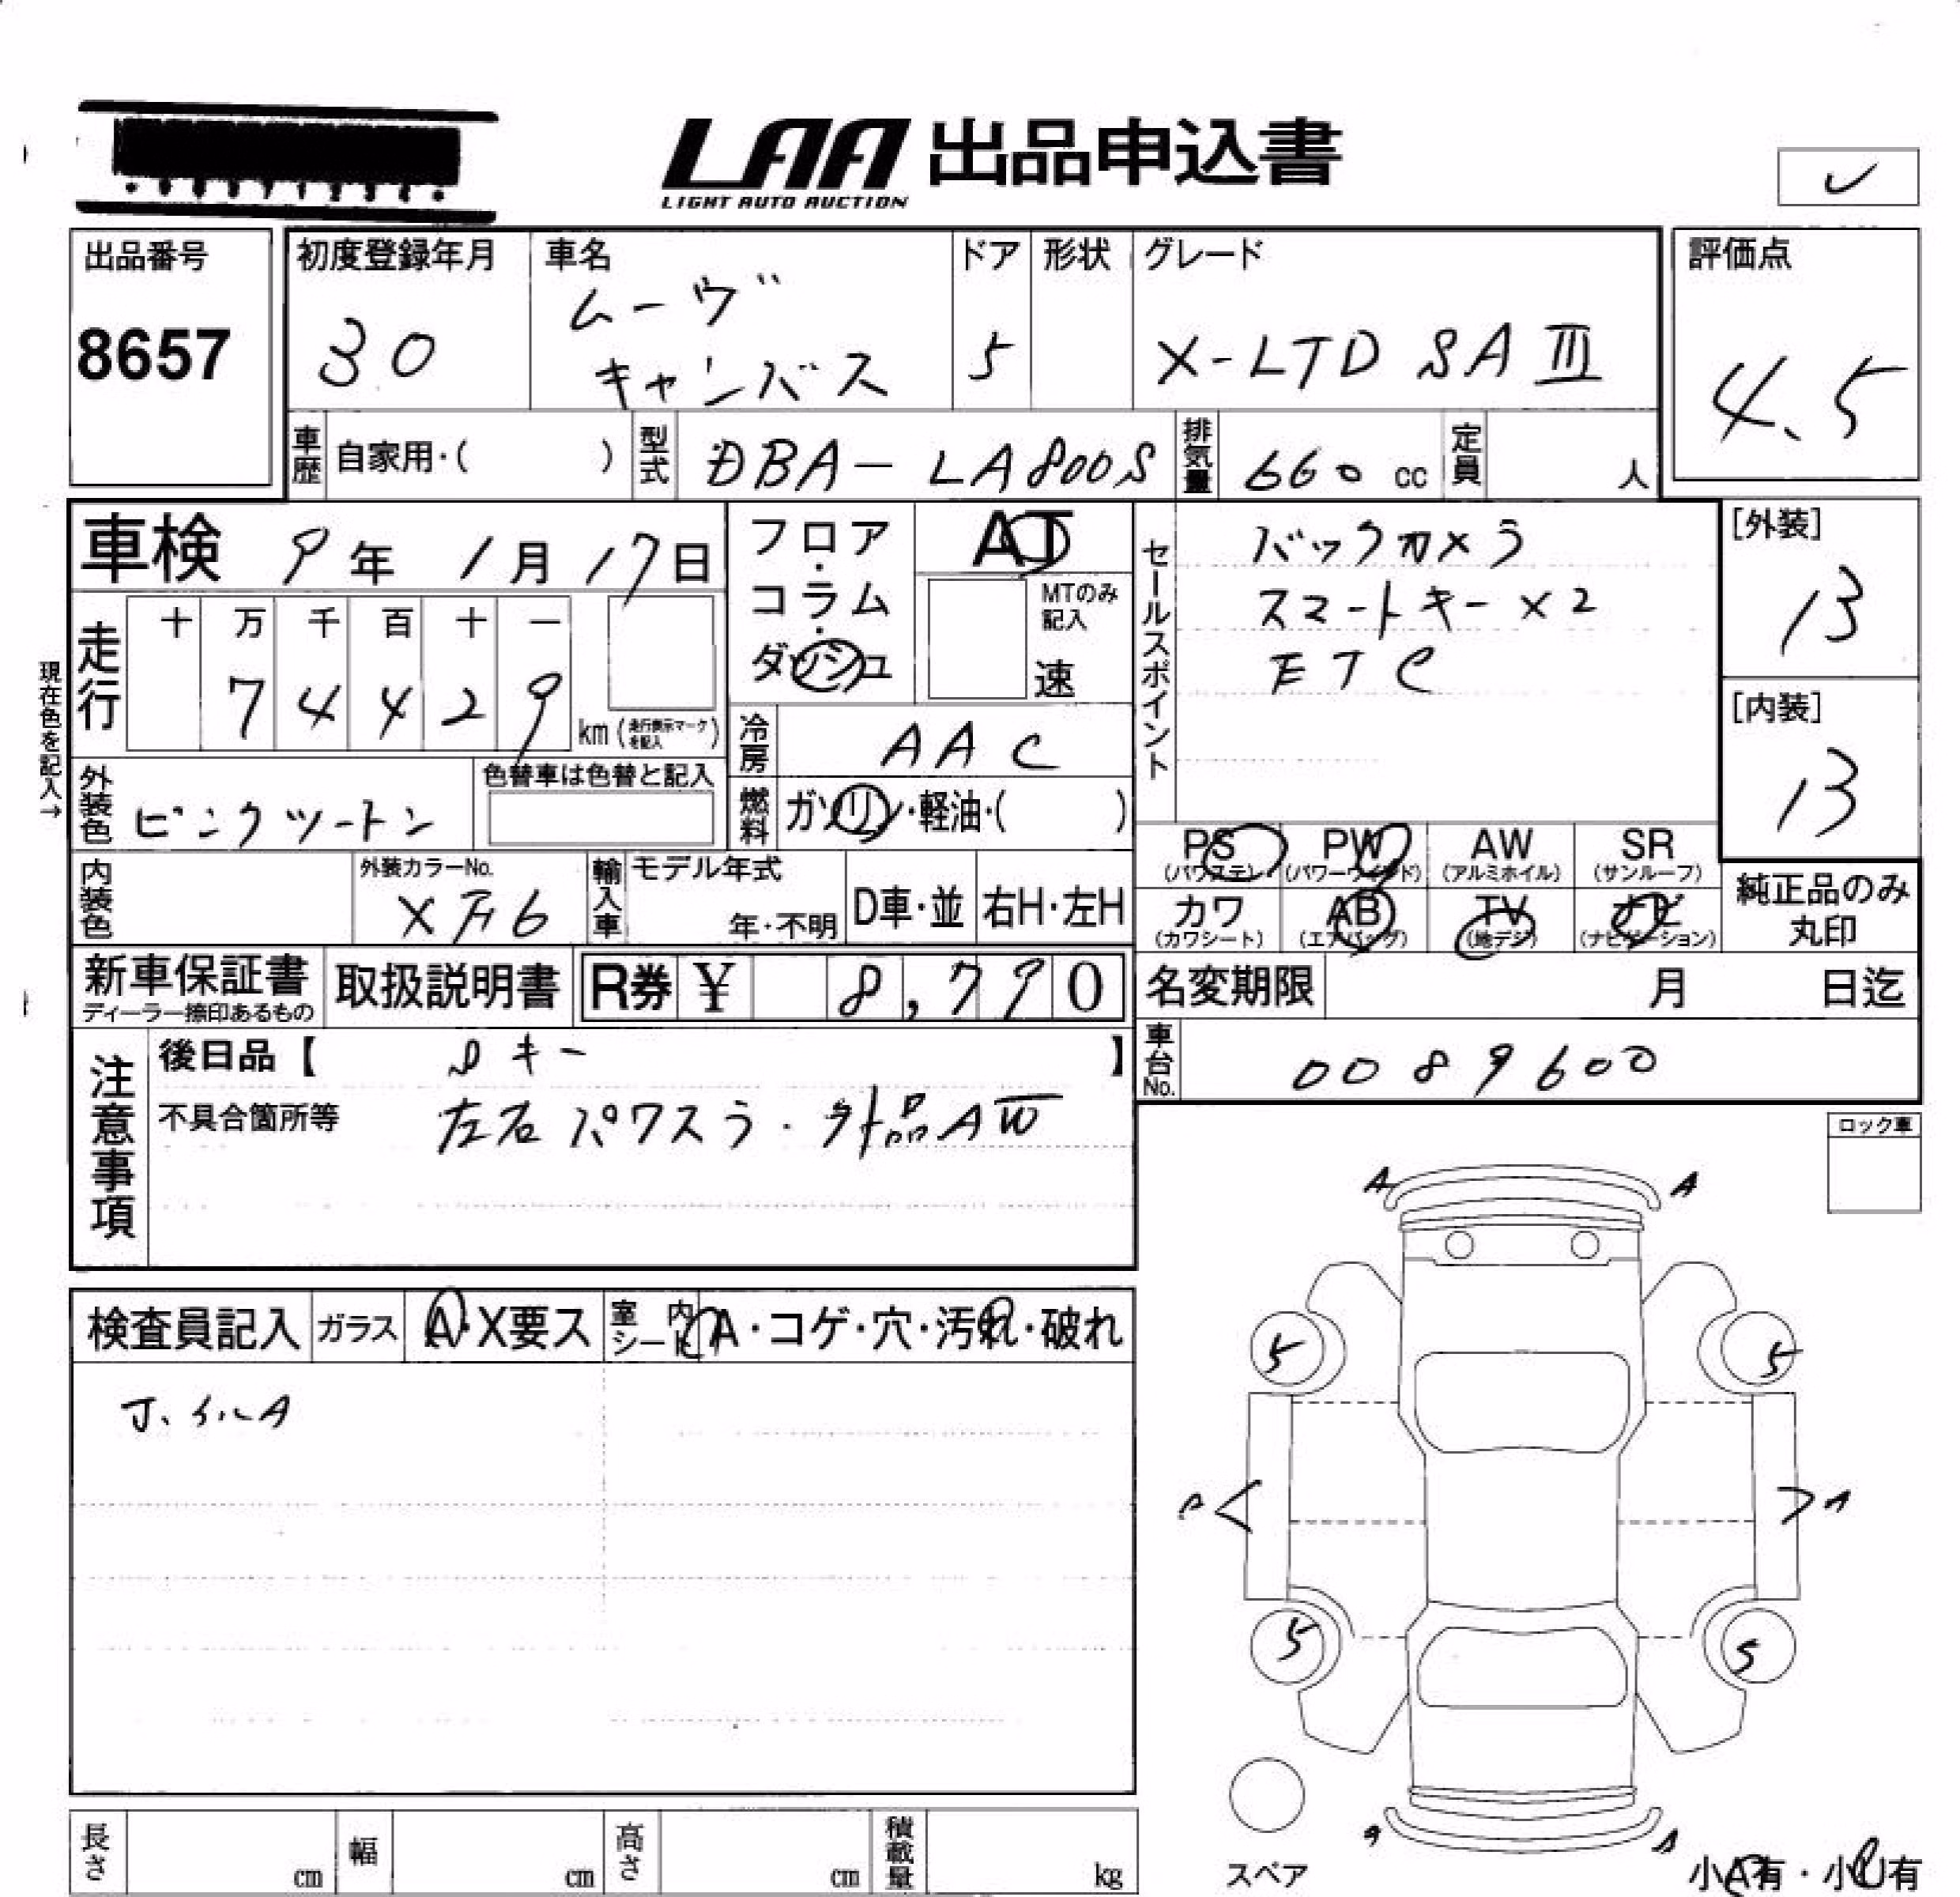 LAA 出品申込書
LIGHT AUTO AUCTION
出品番号
8657
初度登録年月
30
車名
ムーヴ
キャンバス
ドア
5
形状
グレード
X-LTD SAⅢ
評価点
4.5
車歴 自家用・( )
型式 DBA-LA800S
排気量 660 cc
定員 人
車検 9年 1月 17日
フロア・コラム・ダッシュ
AT
MTのみ記入
速
現在色を記入→
走行
十 万 千 百 十 一
7 4 4 2 9
km (走行表示マークを記入)
冷房 AAC
燃料 ガソリン・軽油・( )
外装色 ピンクツートン
色替車は色替と記入
セールスポイント
バックカメラ
スマートキー×2
ETC
[外装]
13
[内装]
13
PS (パワステ) PW (パワーウインド) AW (アルミホイル) SR (サンルーフ)
カワ (カワシート) AB (エアバッグ) TV (地デジ) ナビ (ナビゲーション)
純正品のみ丸印
内装色
外装カラーNo.
輸入車 モデル年式 年・不明
D車・並 右H・左H
新車保証書
ディーラー捺印あるもの
取扱説明書
R券 ¥ 8,790
名変期限 月 日迄
車台No. 0089600
注意事項
後日品【 Sキー 】
不具合箇所等 左右パワスラ・外品AW
ロック車
検査員記入 ガラス A・X要ス 室内シート A・コゲ・穴・汚れ・破れ
ホイルA
A A
5 5
A A
5 5
A A
スペア
小A有・小U有
長さ cm 幅 cm 高さ cm 積載量 kg